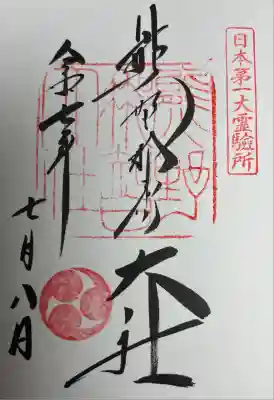 日本第一大霊驗所
熊野那智大社
令和七年
七月八日